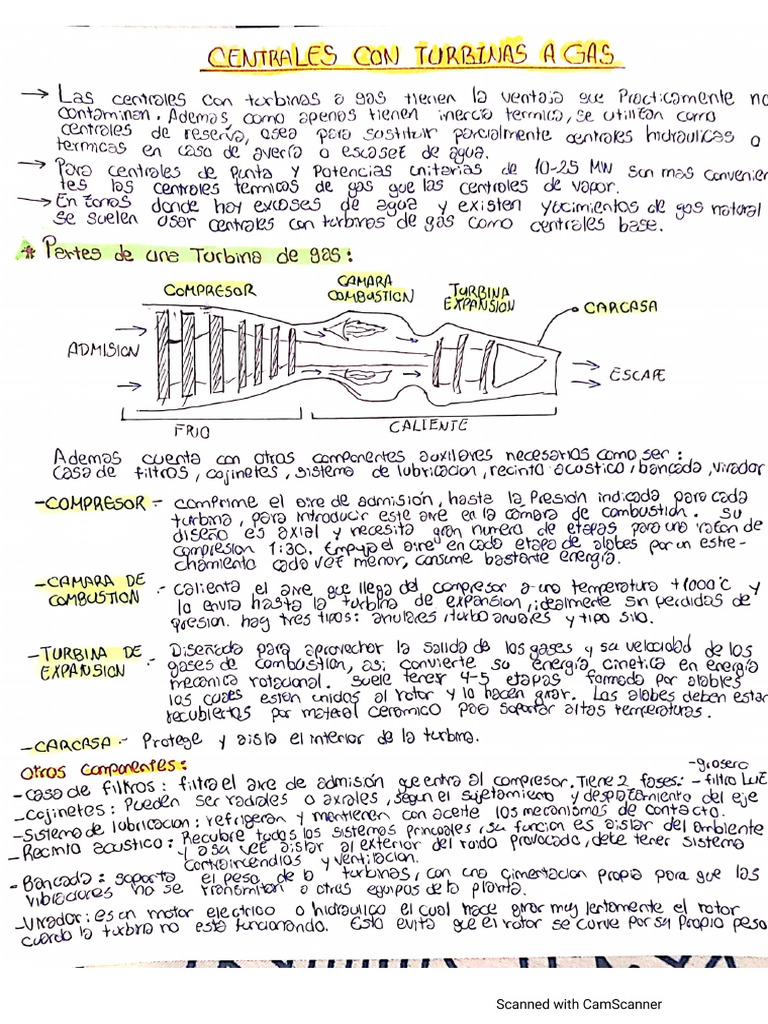 CENTRALES CON TURBINAS A GAS
→ Las centrales con turbinas a gas tienen la ventaja que Practicamente no
contaminan. Ademas, como apenas tienen inercia termica, se utilizan como
centrales de reserva, osea para sostituir parcialmente centrales hidraulicas o
termicas en caso de avería o escasez de agua.
→ Para centrales de Punta y Potencias unitarias de 10-25 MW son mas convenien
tes las centrales termicas de gas que las centrales de vapor.
→ En zonas donde hay excases de agua y existen yacimientos de gas natural
se suelen usar centrales con turbinas de gas como centrales base.
* Partes de una Turbina de gas:
COMPRESOR
CAMARA
COMBUSTION
TURBINA
EXPANSION
CARCASA
ADMISION
ESCAPE
FRIO
CALIENTE
Ademas cuenta con otros componentes auxiliares necesarios como ser:
casa de filtros, cojinetes, sistema de lubricacion, recinto acustico, bancada, virador
-COMPRESOR:- comprime el aire de admisión, hasta la Presion indicada para cada
turbina, para introducir este aire en la cámara de combustion. Su
diseño es axial y necesita gran numero de etapas para una razon de
compresion 1:30. Empuja el aire en cada etapa de alabes por un estre-
chamiento cada vez menor, consume bastante energía.
-CAMARA DE
COMBUSTION
:- calienta el aire que llega del compresor a una temperatura +1000°C y
lo envia hasta la turbina de expansion, idealmente sin perdidas de
presion. hay tres tipos: anulares, turbo anulares y tipo silo.
-TURBINA DE
EXPANSION
:- Diseñada para aprovechar la salida de los gases y su velocidad de los
gases de combustion, asi convierte su energía cinetica en energía
mecánica rotacional. Suele tener 4-5 etapas formado por alabes
los cuales estan unidos al rotor y lo hacen girar. Los alabes deben estar
recubiertas por material ceramico para soportar altas temperaturas.
-CARCASA:- Protege y aisla el interior de la turbina.
Otros Componentes:
-casa de filtros: filtra el aire de admisión que entra al compresor. Tiene 2 fases:
-grosero
-filtro
-cojinetes: Pueden ser radiales o axiales, según el sujetamiento y desplazamiento del eje
-Sistema de lubricacion: refrigeran y mantienen con aceite los mecanismos de contacto.
-Recinto acustico: Recubre todos los sistemas principales, su funcion es aislar del ambiente
y a su vez aislar al exterior del ruido provocado, debe tener sistema
contraincendios y ventilacion.
-Bancada: soporta el peso de la turbinas, con una cimentacion propia para que las
vibraciones no se transmitan a otras equipos de la planta.
-Virador: es un motor electrico o hidraulico el cual hace girar muy lentamente el rotor
cuando la turbina no esta funcionando. Esto evita que el rotor se curve por su propio peso
Scanned with CamScanner